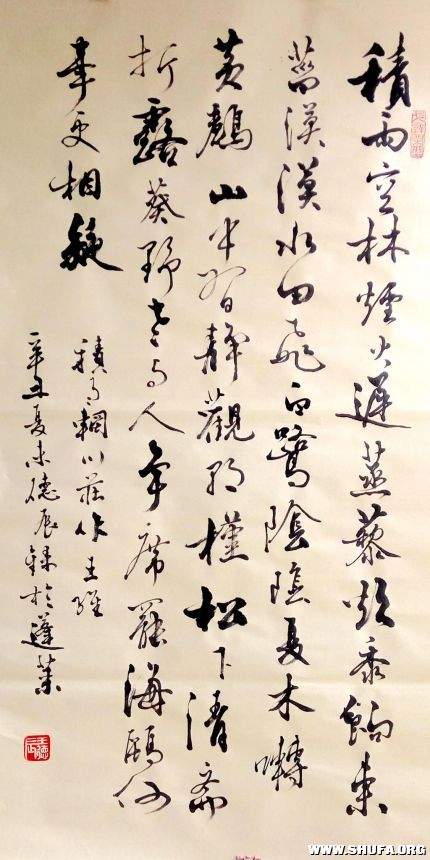 積雨空林煙火遲蒸藜炊黍餉東
菑漠漠水田飛白鷺陰陰夏木囀
黃鸝山中習靜觀朝槿松下清齋
折露葵野老与人爭席罷海鷗何
事更相疑
積雨輞川莊作王維
辛丑夏末德辰録於蓬萊
WWW.SHUFA.ORG